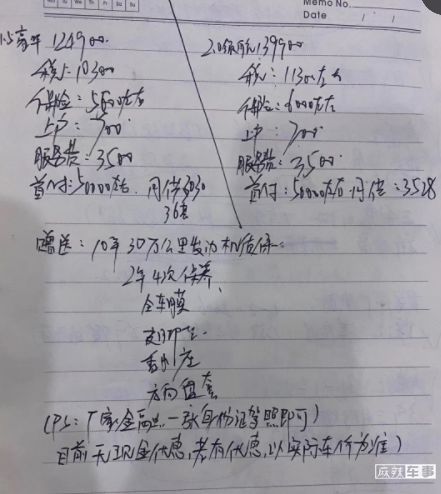 Memo No.
Date / /
1.5豪华 124900
税: 10300
保险: 5600左右
上户: 700
服务费: 3500
首付: 50000左右. 月供3030
36期
2.0 139900
税: 11300左右
保险: 6000左右
上户: 700
服务费: 3500
首付: 50000左右 月供: 3528
赠送: 10年30万公里发动机质保
2年4次保养
全车膜
方向盘套
(PS: 厂家金融 一张身份证驾照即可)
目前无现金优惠, 若有优惠, 以实际车价为准)
麻辣车事